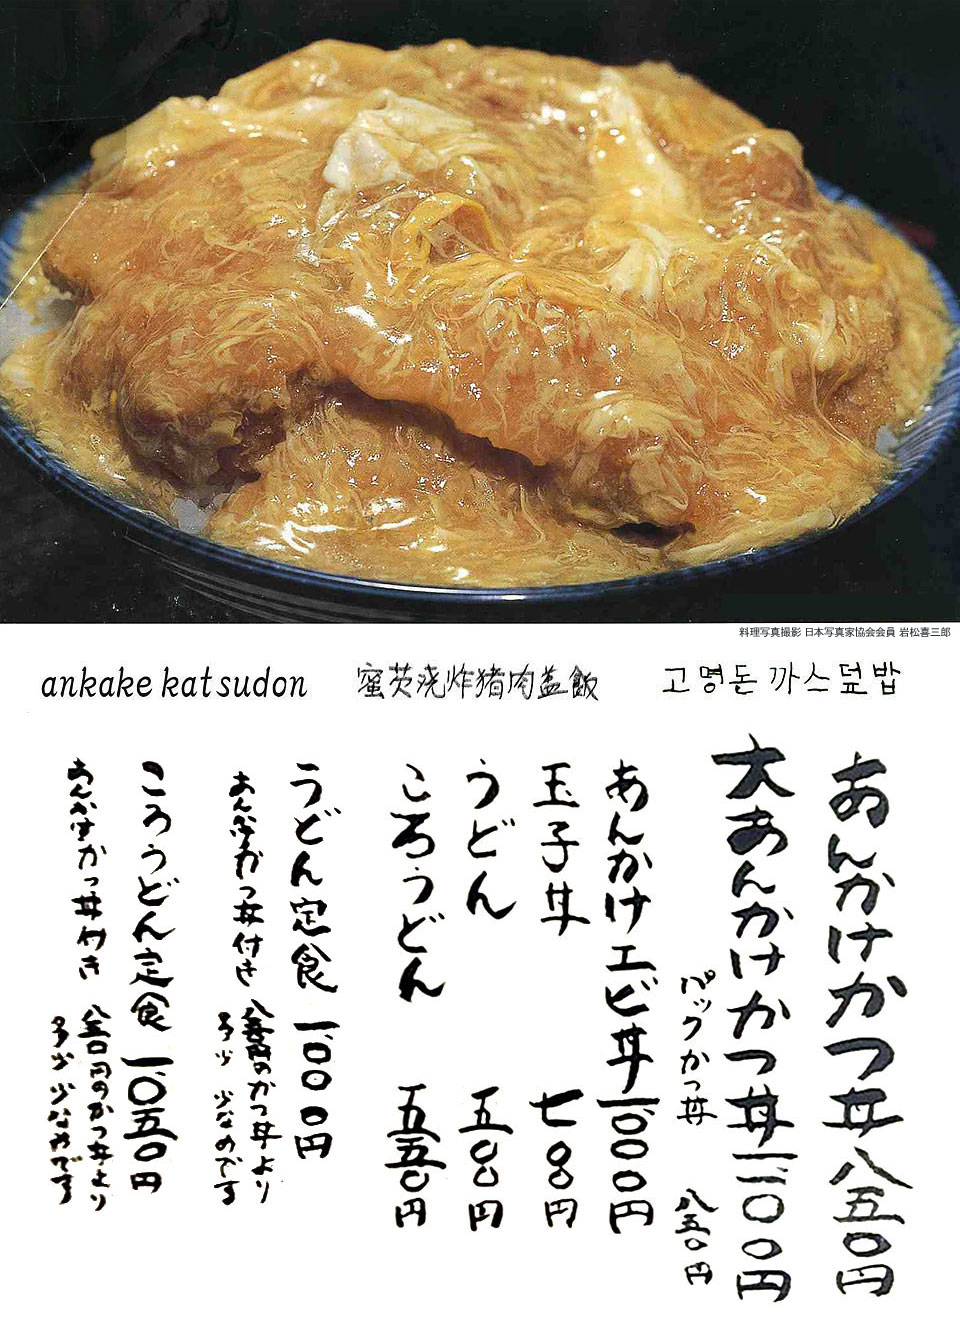 料理写真撮影 日本写真家協会会員 岩松喜三郎
ankake katsudon
蜜芡浇炸猪肉盖飯
고명돈까스덮밥
あんかけかつ丼 八五〇円
大あんかけかつ丼 一、一〇〇円
パックかつ丼 八五〇円
あんかけエビ丼 一、〇〇〇円
玉子丼 七〇〇円
うどん 五〇〇円
ころうどん 五五〇円
うどん定食 一、〇〇〇円
あんかけかつ丼付き 八五〇円のかつ丼より
多少 少なめです
ころうどん定食 一、〇五〇円
あんかけかつ丼付き 八五〇円のかつ丼より
多少 少なめです